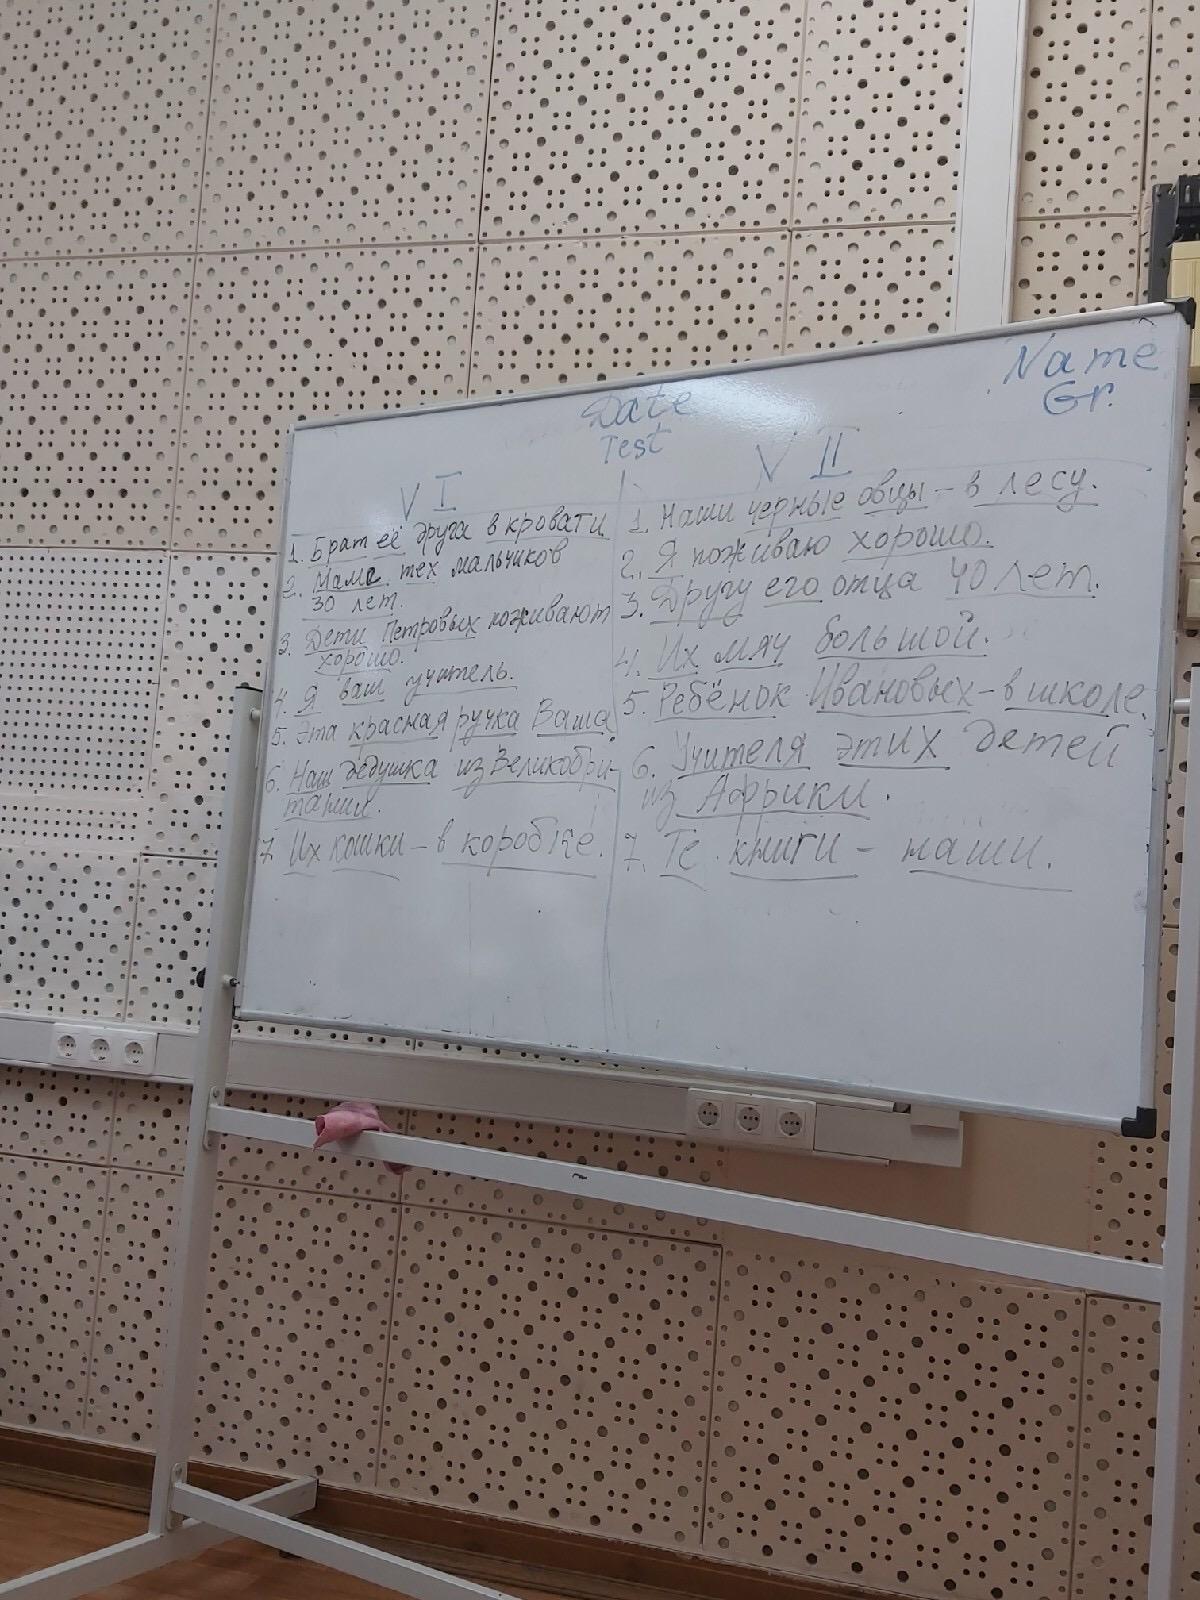 Name
Gr.
Date
Test
V I
1. Брат её друга в кровати
2. Мама тех мальчиков
30 лет.
3. Дети Петровых поживают
хорошо.
4. Я ваш учитель.
5. Эта красная ручка Ваша.
6. Наш дедушка из Великобри-
тании.
7. Их кошки – в коробке.
V II
1. Наши черные овцы – в лесу.
2. Я поживаю хорошо.
3. Другу его отца 40 лет.
4. Их мяч большой.
5. Ребёнок Ивановых – в школе.
6. Учителя этих детей
из Африки.
7. Те книги – наши.